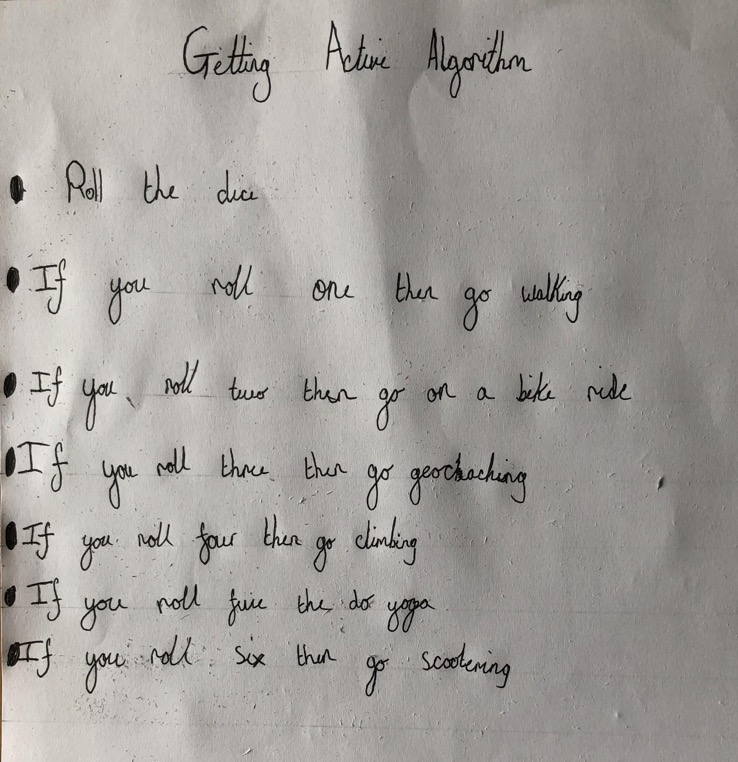 Getting Active Algorithm
• Roll the dice
• If you roll one then go walking
• If you roll two then go on a bike ride
• If you roll three then go geocaching
• If you roll four then go climbing
• If you roll five the do yoga
• If you roll six then go scootering